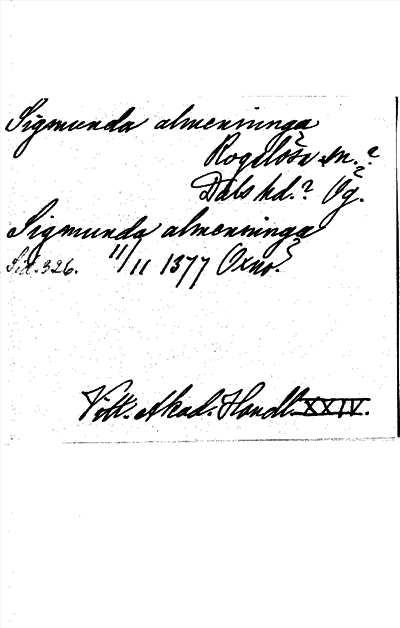 Sigmunda almenninga
Rogslösa sn.?
Dals hd.? Ög.?
Sigmunda almenninga
Sid. 326. 11/11 1377 Oxnö?
Vitt. Akad. Handl. XXIV.